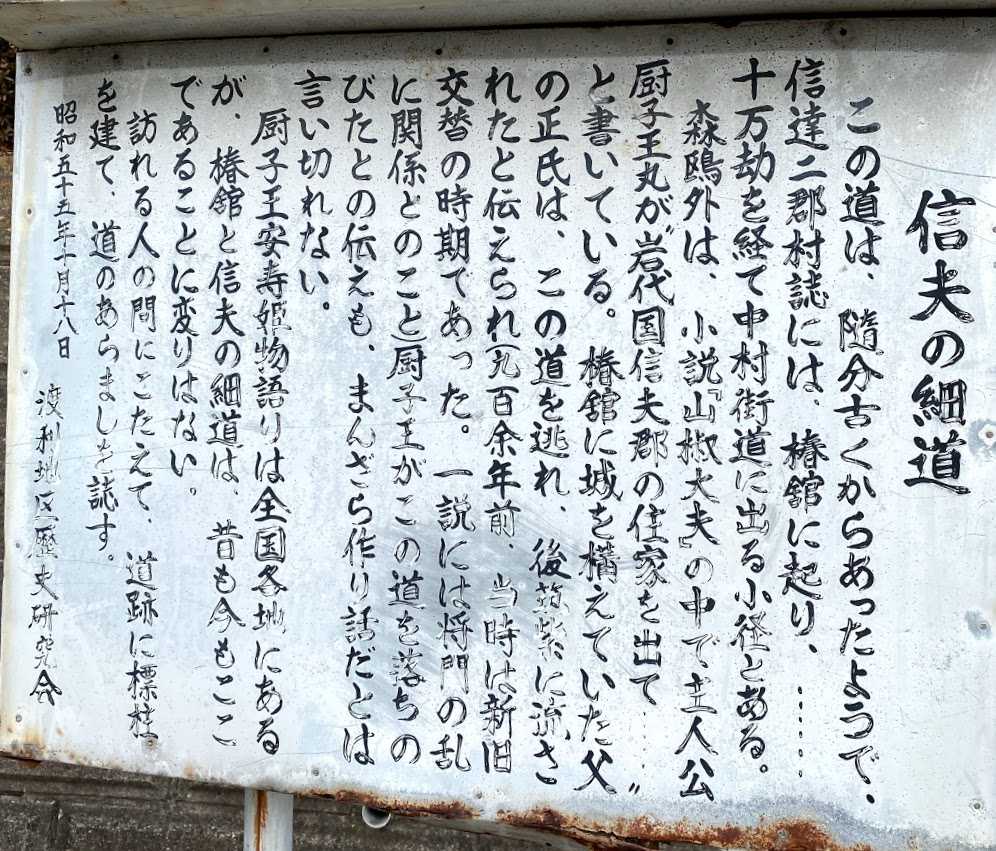 信夫の細道
この道は、随分古くからあったようで、
信達二郡村誌には、椿舘に起り、……
十万劫を経て中村街道に出る小径とある。
森鴎外は、小説『山椒大夫』の中で主人公
厨子王丸が〝岩代国信夫郡の住家を出て……〟
と書いている。椿舘に城を構えていた父
の正氏は、この道を逃れ、後筑紫に流さ
れたと伝えられ(九百余年前、当時は新旧
交替の時期であった。一説には将門の乱
に関係とのこと)厨子王がこの道を落ちの
びたとの伝えも、まんざら作り話だとは
言い切れない。
厨子王安寿姫物語りは全国各地にある
が、椿舘と信夫の細道は、昔も今もここ
であることに変りはない。
訪れる人の問にこたえて、道跡に標柱
を建て、道のあらましを誌す。
昭和五十五年十月十八日
渡利地区歴史研究会